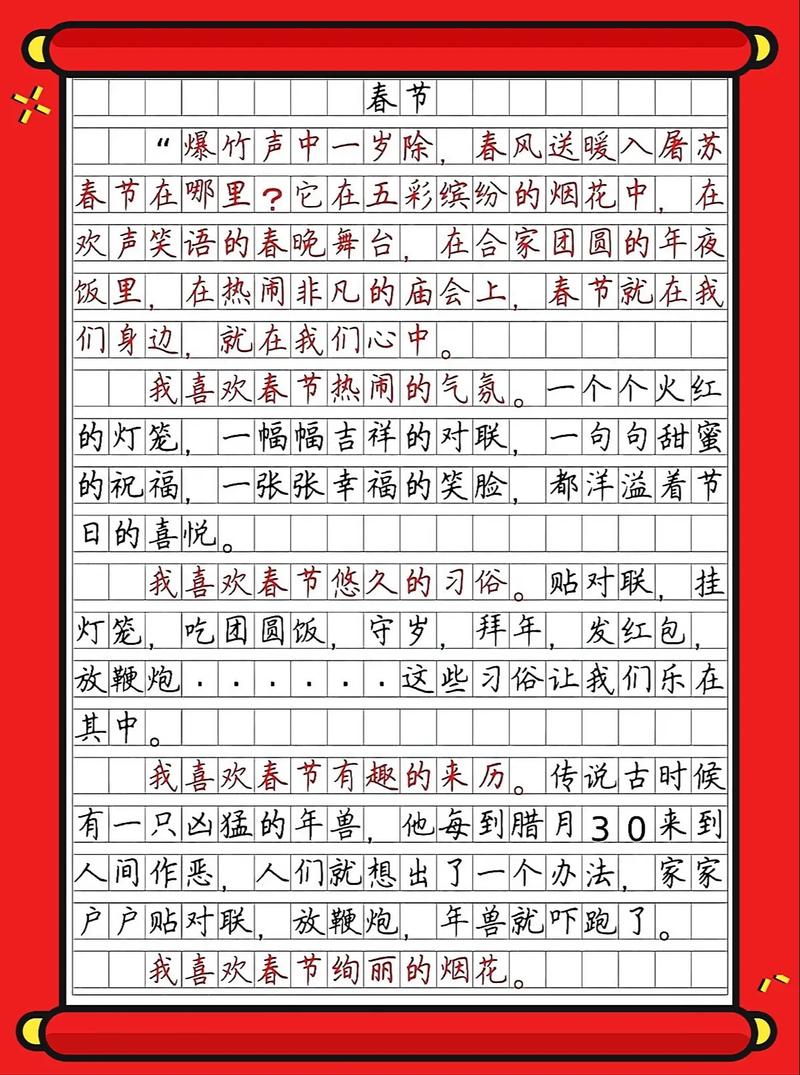 春节
“爆竹声中一岁除，春风送暖入屠苏
春节在哪里？它在五彩缤纷的烟花中，在
欢声笑语的春晚舞台，在合家团圆的年夜
饭里，在热闹非凡的庙会上，春节就在我
们身边，就在我们心中。
我喜欢春节热闹的气氛。一个个火红
的灯笼，一幅幅吉祥的对联，一句句甜蜜
的祝福，一张张幸福的笑脸，都洋溢着节
日的喜悦。
我喜欢春节悠久的习俗。贴对联，挂
灯笼，吃团圆饭，守岁，拜年，发红包，
放鞭炮······这些习俗让我们乐在
其中。
我喜欢春节有趣的来历。传说古时候
有一只凶猛的年兽，他每到腊月30来到
人间作恶，人们就想出了一个办法，家家
户户贴对联，放鞭炮，年兽就吓跑了。
我喜欢春节绚丽的烟花。